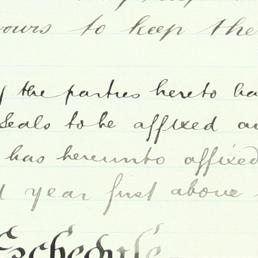 yours to keep the
the parties hereto ha
Seals to be affixed an
has hereunto affixed
year first above
Schedule